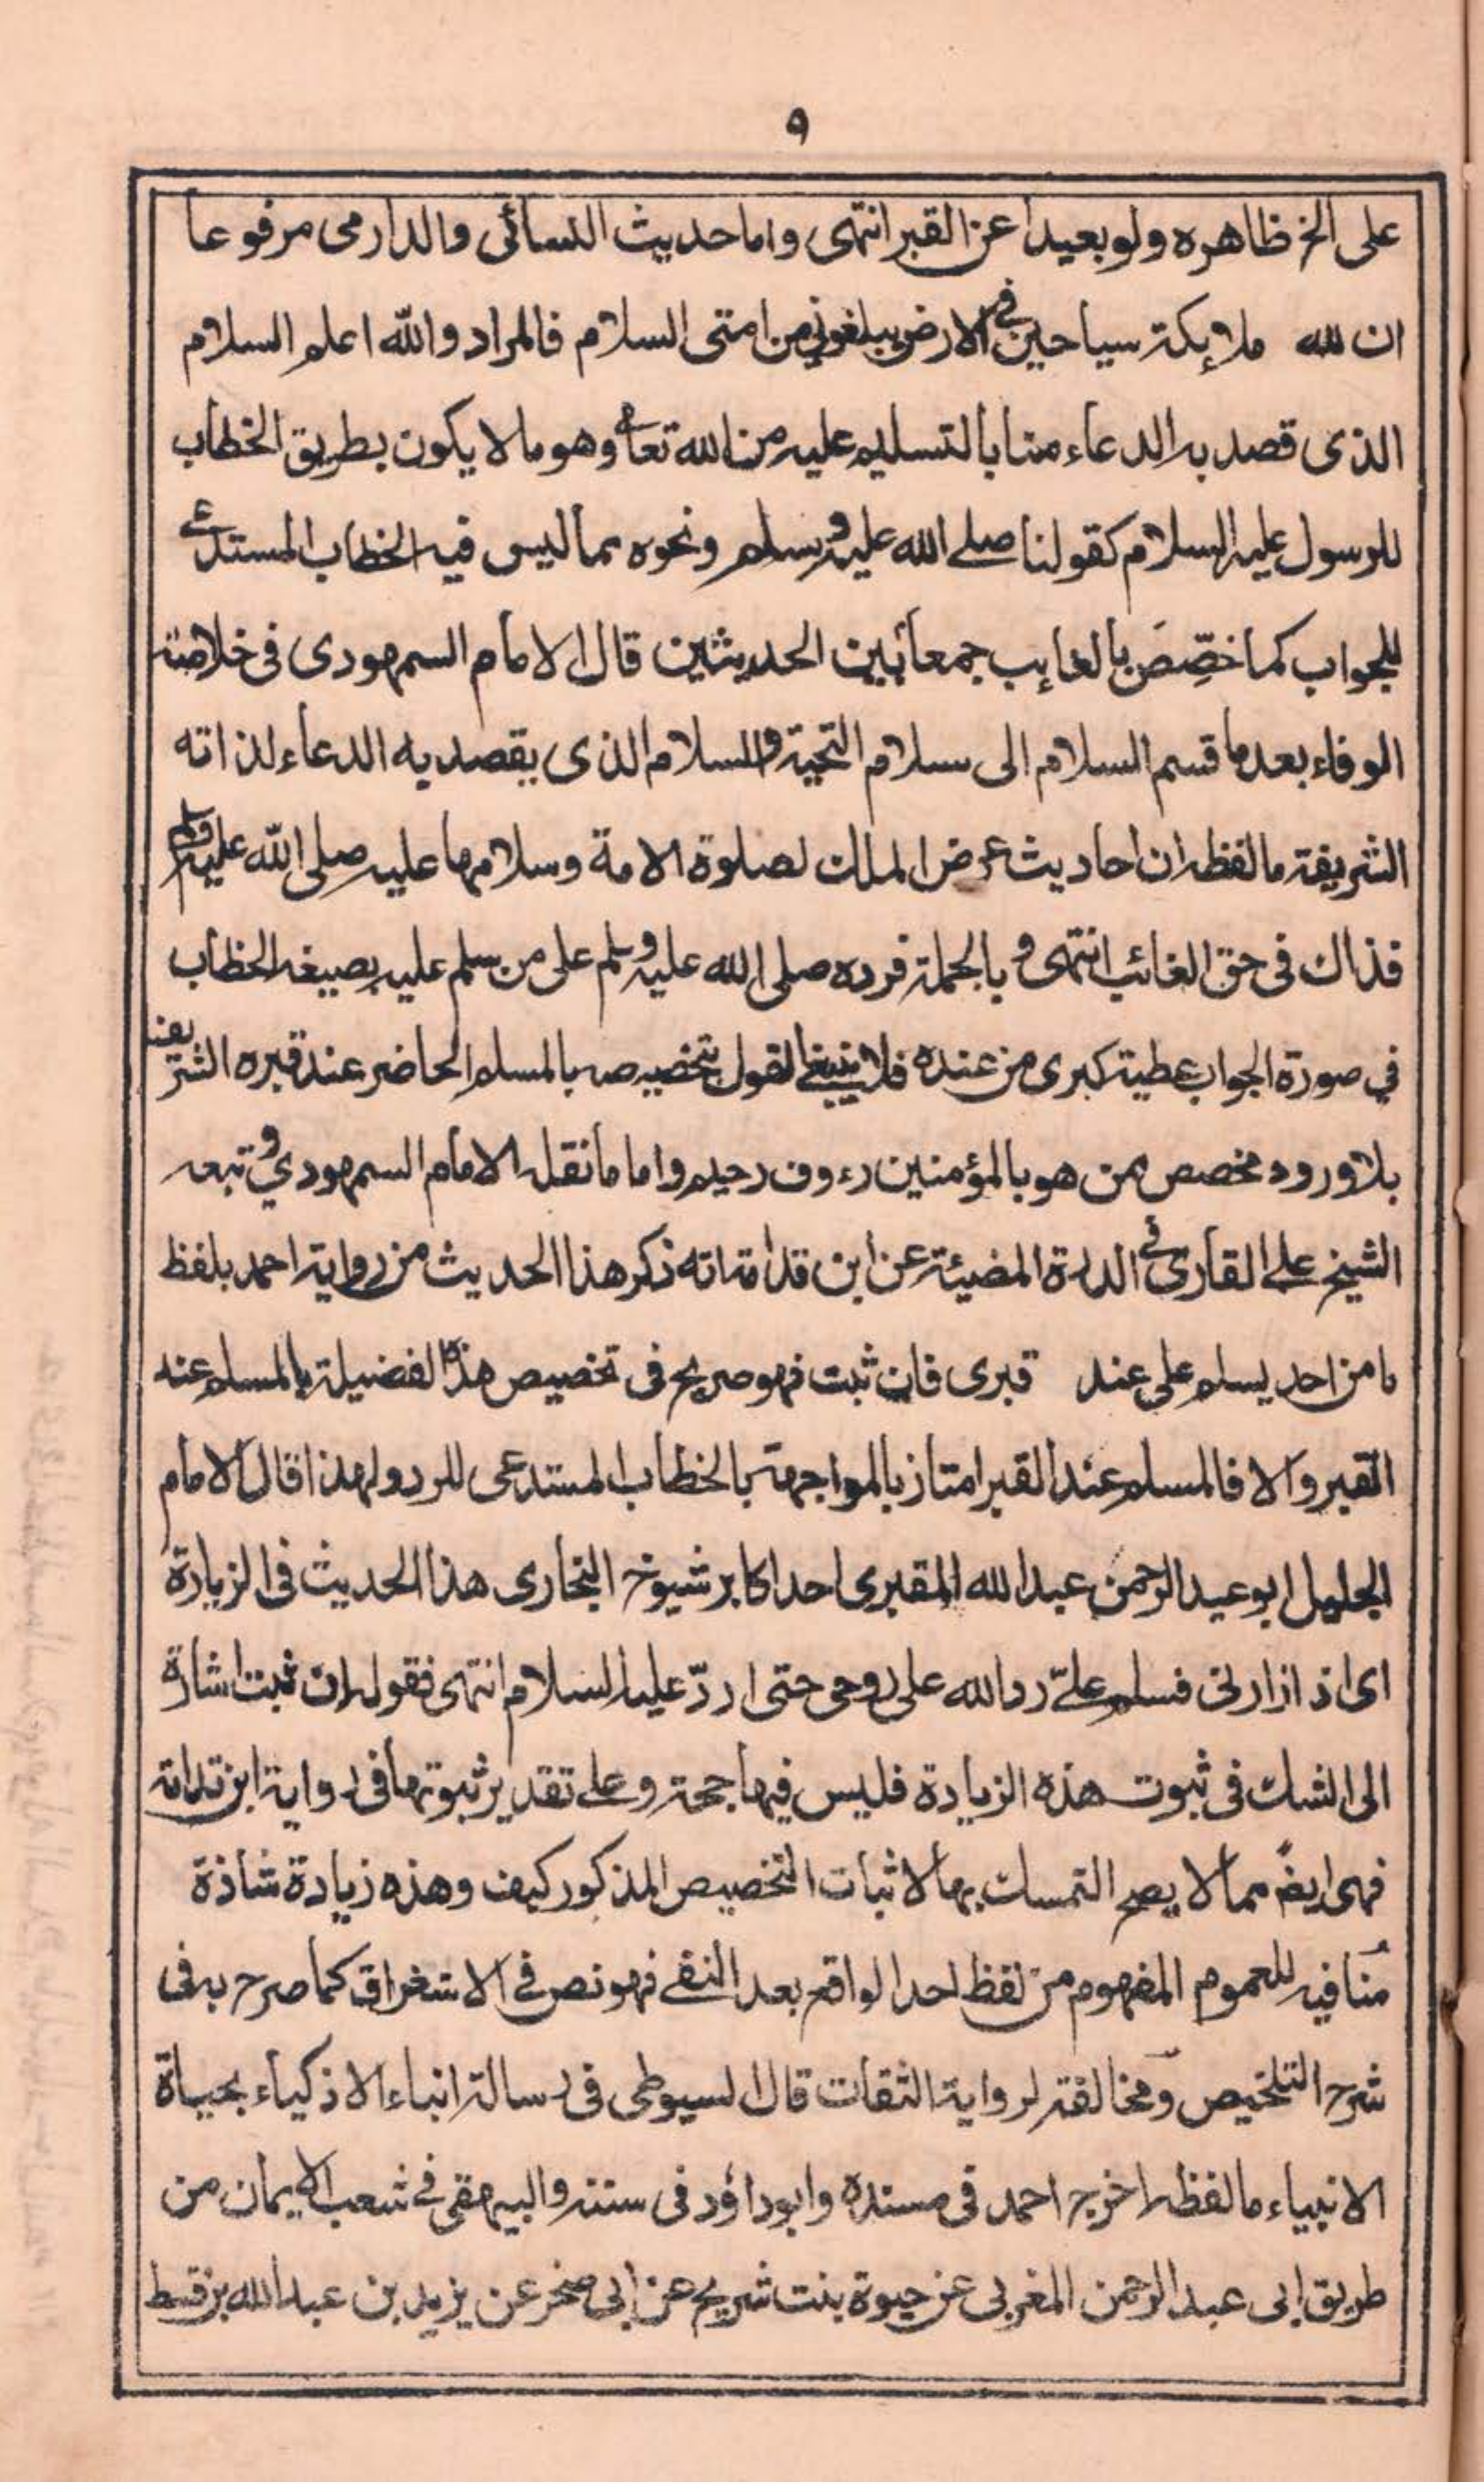 ٩
على الخ ظاهره ولو بعيدا عن القبر انتهى واما حديث النسائى والدارمى مرفوعا
ان لله ملائكة سياحين فى الارض يبلغونى من امتى السلام فالمراد والله اعلم السلام
الذى قصد به الدعاء منا بالتسليم عليه من الله تعالى وهو ما لا يكون بطريق الخطاب
للرسول عليه السلام كقولنا صلے الله عليه وسلم ونحوه مما ليس فيه الخطاب المستدعے
للجواب كما خصّص بالغايب جمعا بين الحديثين قال الامام السمهودى فى خلاصة
الوفاء بعد ما قسم السلام الى سلام التحية والسلام الذى يقصد به الدعاء لذاته
الشريفة ما لفظه ان احاديث عرض الملك لصلوة الامة وسلامها عليه صلى الله عليه وسلم
فذاك فى حق الغائب انتهى و بالجملة فرده صلى الله عليه وسلم على من سلم عليه بصيغة الخطاب
في صورة الجواب عطية كبرى من عنده فلا ينبغے القول بتخصيصه بالمسلم الحاضر عند قبره الشريف
بلا ورود مخصص ممن هو بالمؤمنين رءوف رحيم واما ما نقله الامام السمهودي و تبعه
الشيخ علے القارى فے الدرة المضيئة عن ابن قدامة انه ذكر هذا الحديث من رواية احمد بلفظ
ما من احد يسلم على عند قبرى فان ثبت فهو صريح فى تخصيص هذه الفضيلة بالمسلم عند
القبر والا فالمسلم عند القبر امتاز بالمواجهة بالخطاب المستدعى للرد ولهذا قال الامام
الجليل ابو عبد الرحمن عبد الله المقبرى احد اكابر شيوخ البخارى هذا الحديث فى الزيارة
اى اذا زارنى فسلم علےّ رد الله على روحى حتى اردّ عليه السلام انتهى فقوله ان ثبت اشارة
الى الشك فى ثبوت هذه الزيادة فليس فيها حجة و علے تقدير ثبوتها فى رواية ابن قدامة
فهى ايضً مما لا يصح التمسك بها لاثبات التخصيص المذكور كيف وهذه زيادة شاذة
مُنافيه للعموم المفهوم من لفظ احد الواقع بعد النفے فهو نص فے الاستغراق كما صرح به فى
شرح التلخيص ومخالفة لرواية الثقات قال السيوطى فى رسالة انباء الاذكياء بحياة
الانبياء ما لفظه اخرج احمد فى مسنده وابوداؤد فى سننه والبيهقى فے شعب الايمان من
طريق ابى عبد الرحمن المغربى عن حيوة بنت شريح عن ابى صخر عن يزيد بن عبد الله بن قسط